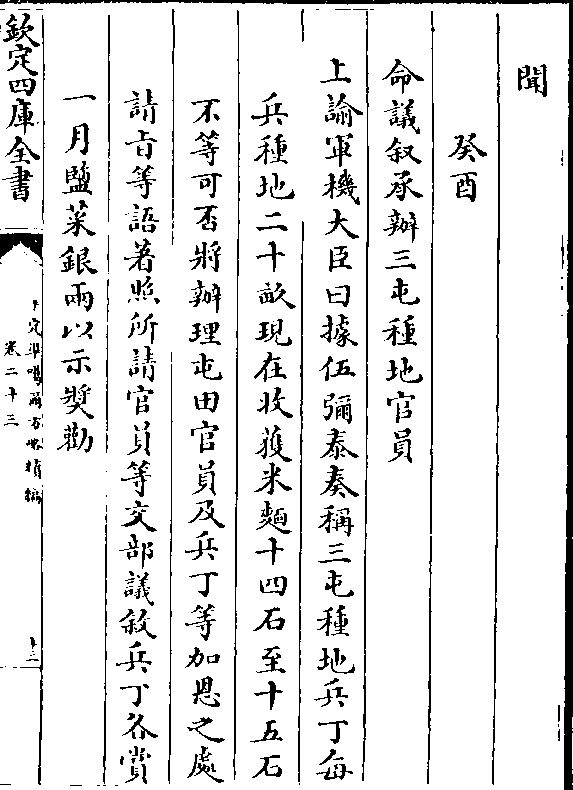 聞
癸酉
命議叙承辦三屯種地官員
上諭軍機大臣曰據伍彌泰奏稱三屯種地兵丁每
兵種地二十畝現在收穫米麵十四石至十五石
不等可否將辦理屯田官員及兵丁等加恩之處
請㫖等語著照所請官員等交部議敘兵丁各賞
一月鹽菜銀兩以示奬勸
欽定四庫全書
定準噶爾方略續編
卷二十三
十三